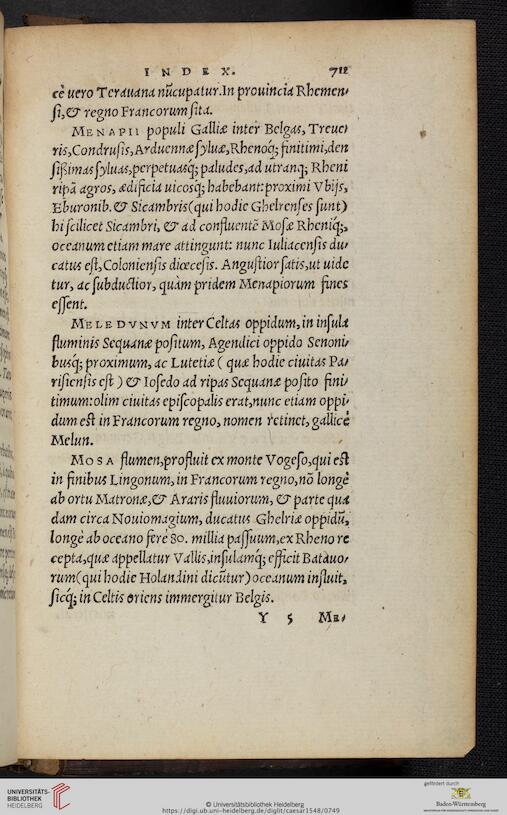 INDEX. 711
cè uero Terauana nũcupatur.In prouincia Rhemen-
si,& regno Francorum sita.
MENAPII populi Galliæ inter Belgas, Treue-
ris,Condrusis,Arduennæ syluæ,Rhenoq́; finitimi,den
sißimas syluas,perpetuasq́; paludes,ad utranq; Rheni
ripã agros, ædificia uicosq́; habebant:proximi Vbijs,
Eburonib.& Sicambris(qui hodie Ghelrenses sunt)
hi scilicet Sicambri, & ad confluentẽ Mosæ Rheniq́;,
oceanum etiam mare attingunt: nunc Iuliacensis du-
catus est,Coloniensis diœcesis. Angustior satis,ut uide
tur, ac subductior, quàm pridem Menapiorum fines
essent.
MELEDVNVM inter Celtas oppidum,in insula
fluminis Sequanæ positum, Agendici oppido Senoni-
busq́; proximum, ac Lutetiæ ( quæ hodie ciuitas Pa-
risiensis est ) & Iosedo ad ripas Sequanæ posito fini-
timum:olim ciuitas episcopalis erat,nunc etiam oppi-
dum est in Francorum regno, nomen retinet, gallicè
Melun.
MOSA flumen,profluit ex monte Vogeso,qui est
in finibus Lingonum,in Francorum regno,nõ longè
ab ortu Matronæ,& Araris fluuiorum, & parte qua
dam circa Nouiomagium, ducatus Ghelriæ oppidũ,
longè ab oceano ferè 80. millia passuum,ex Rheno re
cepta,quæ appellatur Vallis,insulamq́; efficit Batauo-
rum(qui hodie Holandini dicũtur)oceanum influit,
sicq́; in Celtis oriens immergitur Belgis.
Y 5 ME-
UNIVERSITÄTS-
BIBLIOTHEK
HEIDELBERG
© Universitätsbibliothek Heidelberg
https://digi.ub.uni-heidelberg.de/diglit/caesar1548/0749
gefördert durch
Baden-Württemberg